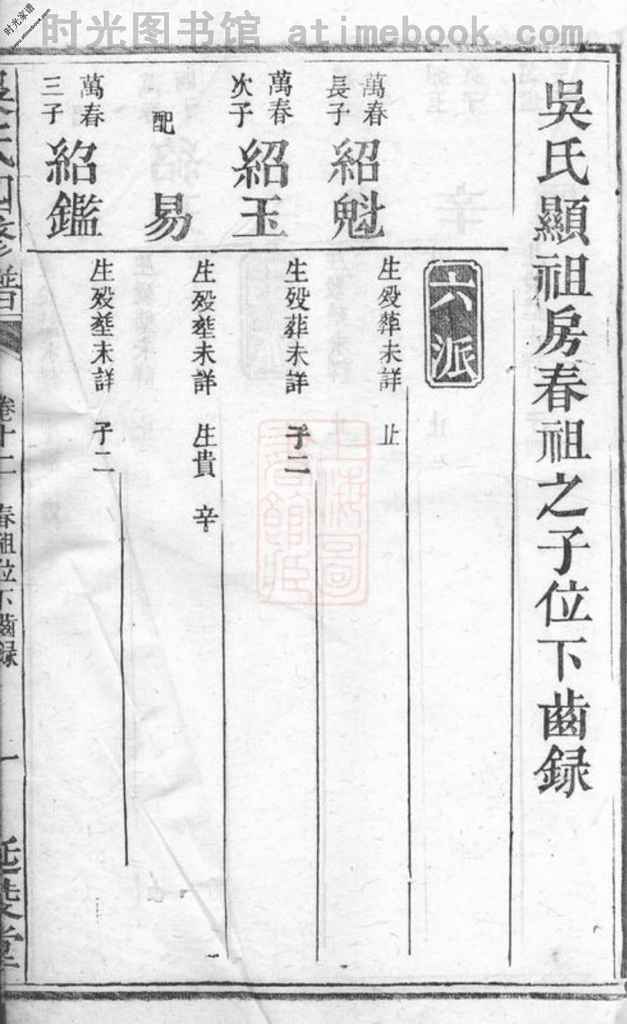 时光图书馆 atimebook.com
时光家谱
吳氏顯祖房春祖之子位下齒録
六派
萬春
長子
紹魁
生殁葬未詳 止
萬春
次子
紹玉
生殁葬未詳 子二
配
易
生殁塟未詳 生貴 辛
萬春
三子
紹鑑
生殁塟未詳 子二
吳氏四修譜
卷十二 春祖位下齒録
一
延陵堂
上海圖書館藏